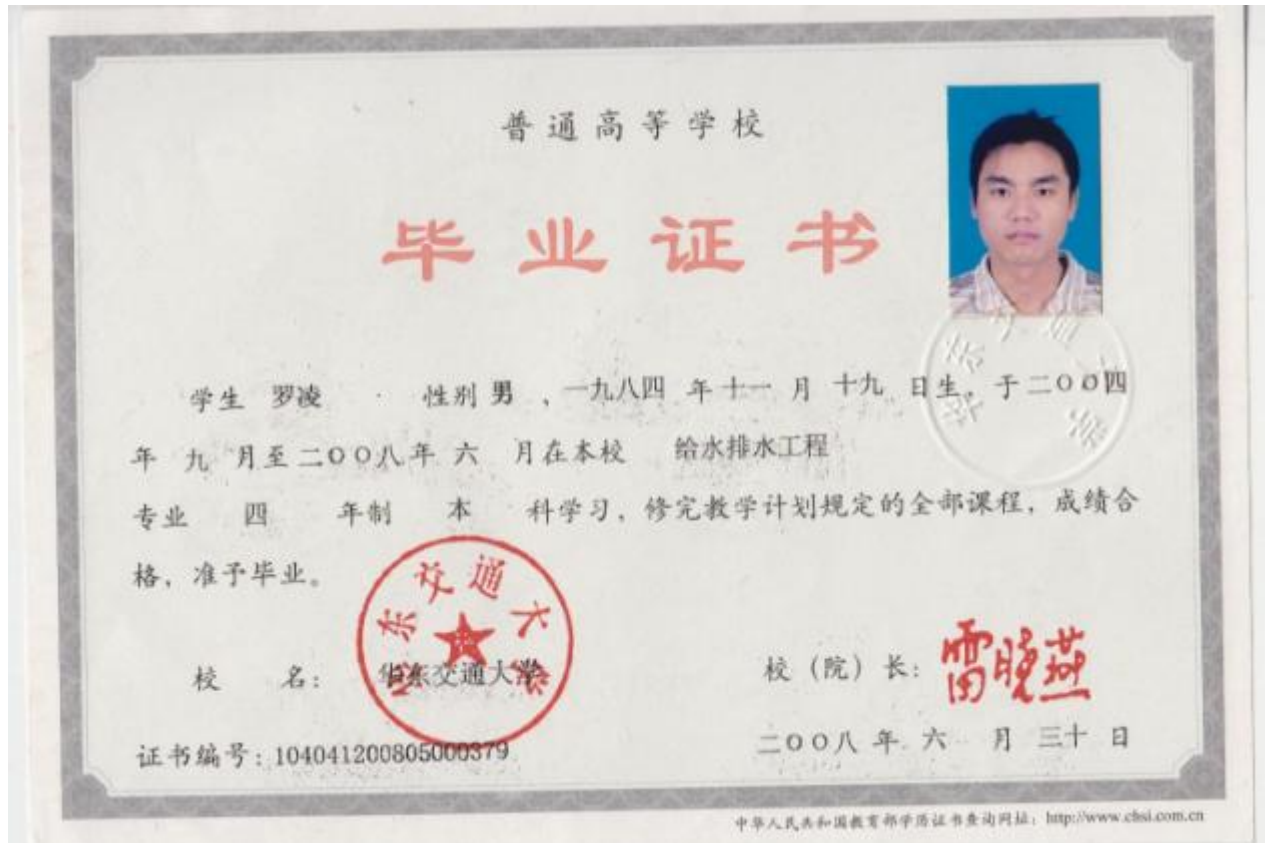 普通高等学校
毕业证书
学生 罗凌 性别 男 、一九八四 年 十一 月 十九 日生，于二〇〇四
年 九 月至二〇〇八年 六 月在本校 给水排水工程
专业 四 年制 本 科学习，修完教学计划规定的全部课程，成绩合
格，准予毕业。
华东交通大学
校 名： 华东交通大学
校（院）长：雷晓燕
证书编号：104041200805000379
二〇〇八 年 六 月 三十 日
中华人民共和国教育部学历证书查询网址：http://www.chsi.com.cn